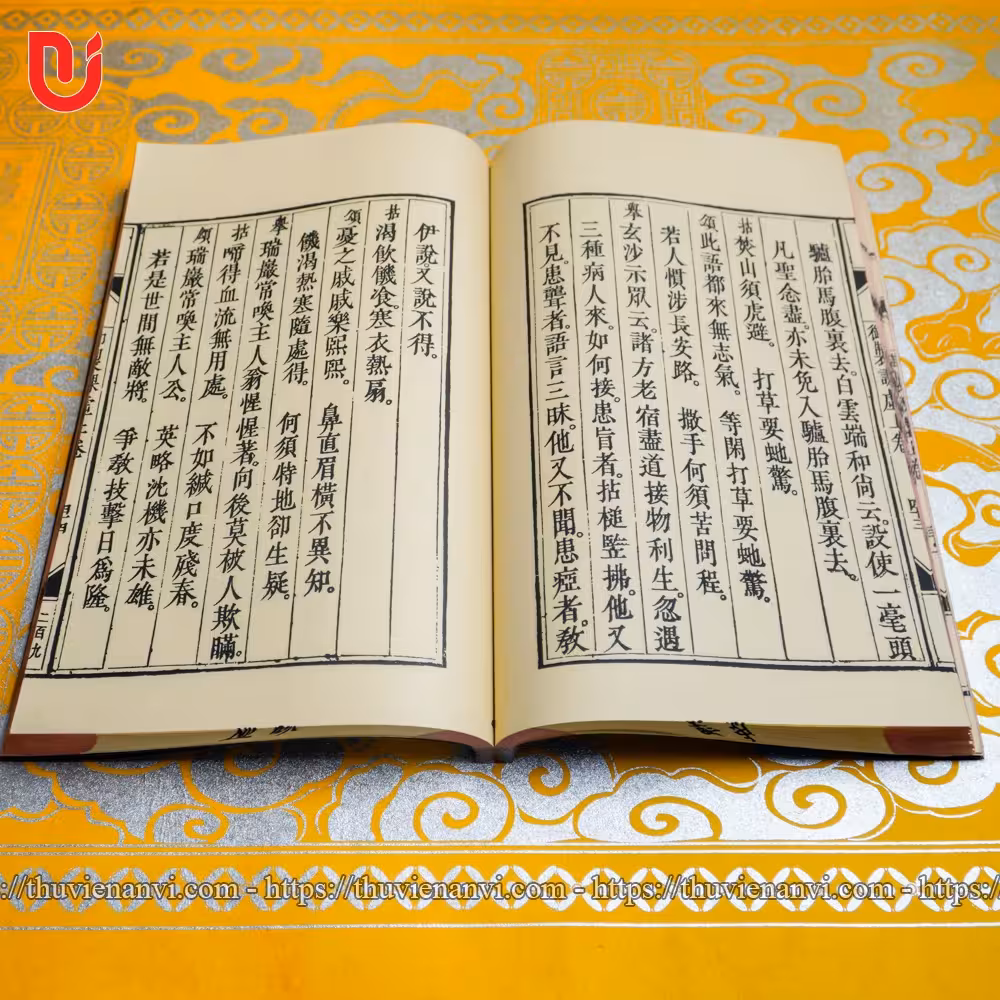 驢胎馬腹裏去。白雲端和尙云。設使一毫頭
凡聖念盡。亦未免入驢胎馬腹裏去。
拈焚山須虎避。 打草要虵驚。
頌此語都來無志氣。 等閑打草要虵驚。
若人慣涉長安路。 撒手何須苦問程。
擧玄沙示眾云。諸方老宿盡道接物利生。忽遇
三種病人來。如何接。患盲者。拈槌竪拂。他又
不見。患聾者。語言三昧。他又不聞。患瘂者。敎
伊說。又說不得。
拈渴飲饑飡。寒衣熱扇。
頌憂之戚戚樂熙熙。 鼻直眉橫不異知。
饑渴熱寒隨處得。 何須特地卻生疑。
擧瑞巖常喚主人翁惺惺著。向後莫被人欺瞞。
拈啼得血流無用處。 不如緘口度殘春。
頌瑞巖常喚主人公。 英略沈機亦未雄。
若是世間無敵將。 爭敎技擊日爲隆。
二百九
://thuvienanvi.com - https://thuvienanvi.com - https://thuvienanvi.com - https://